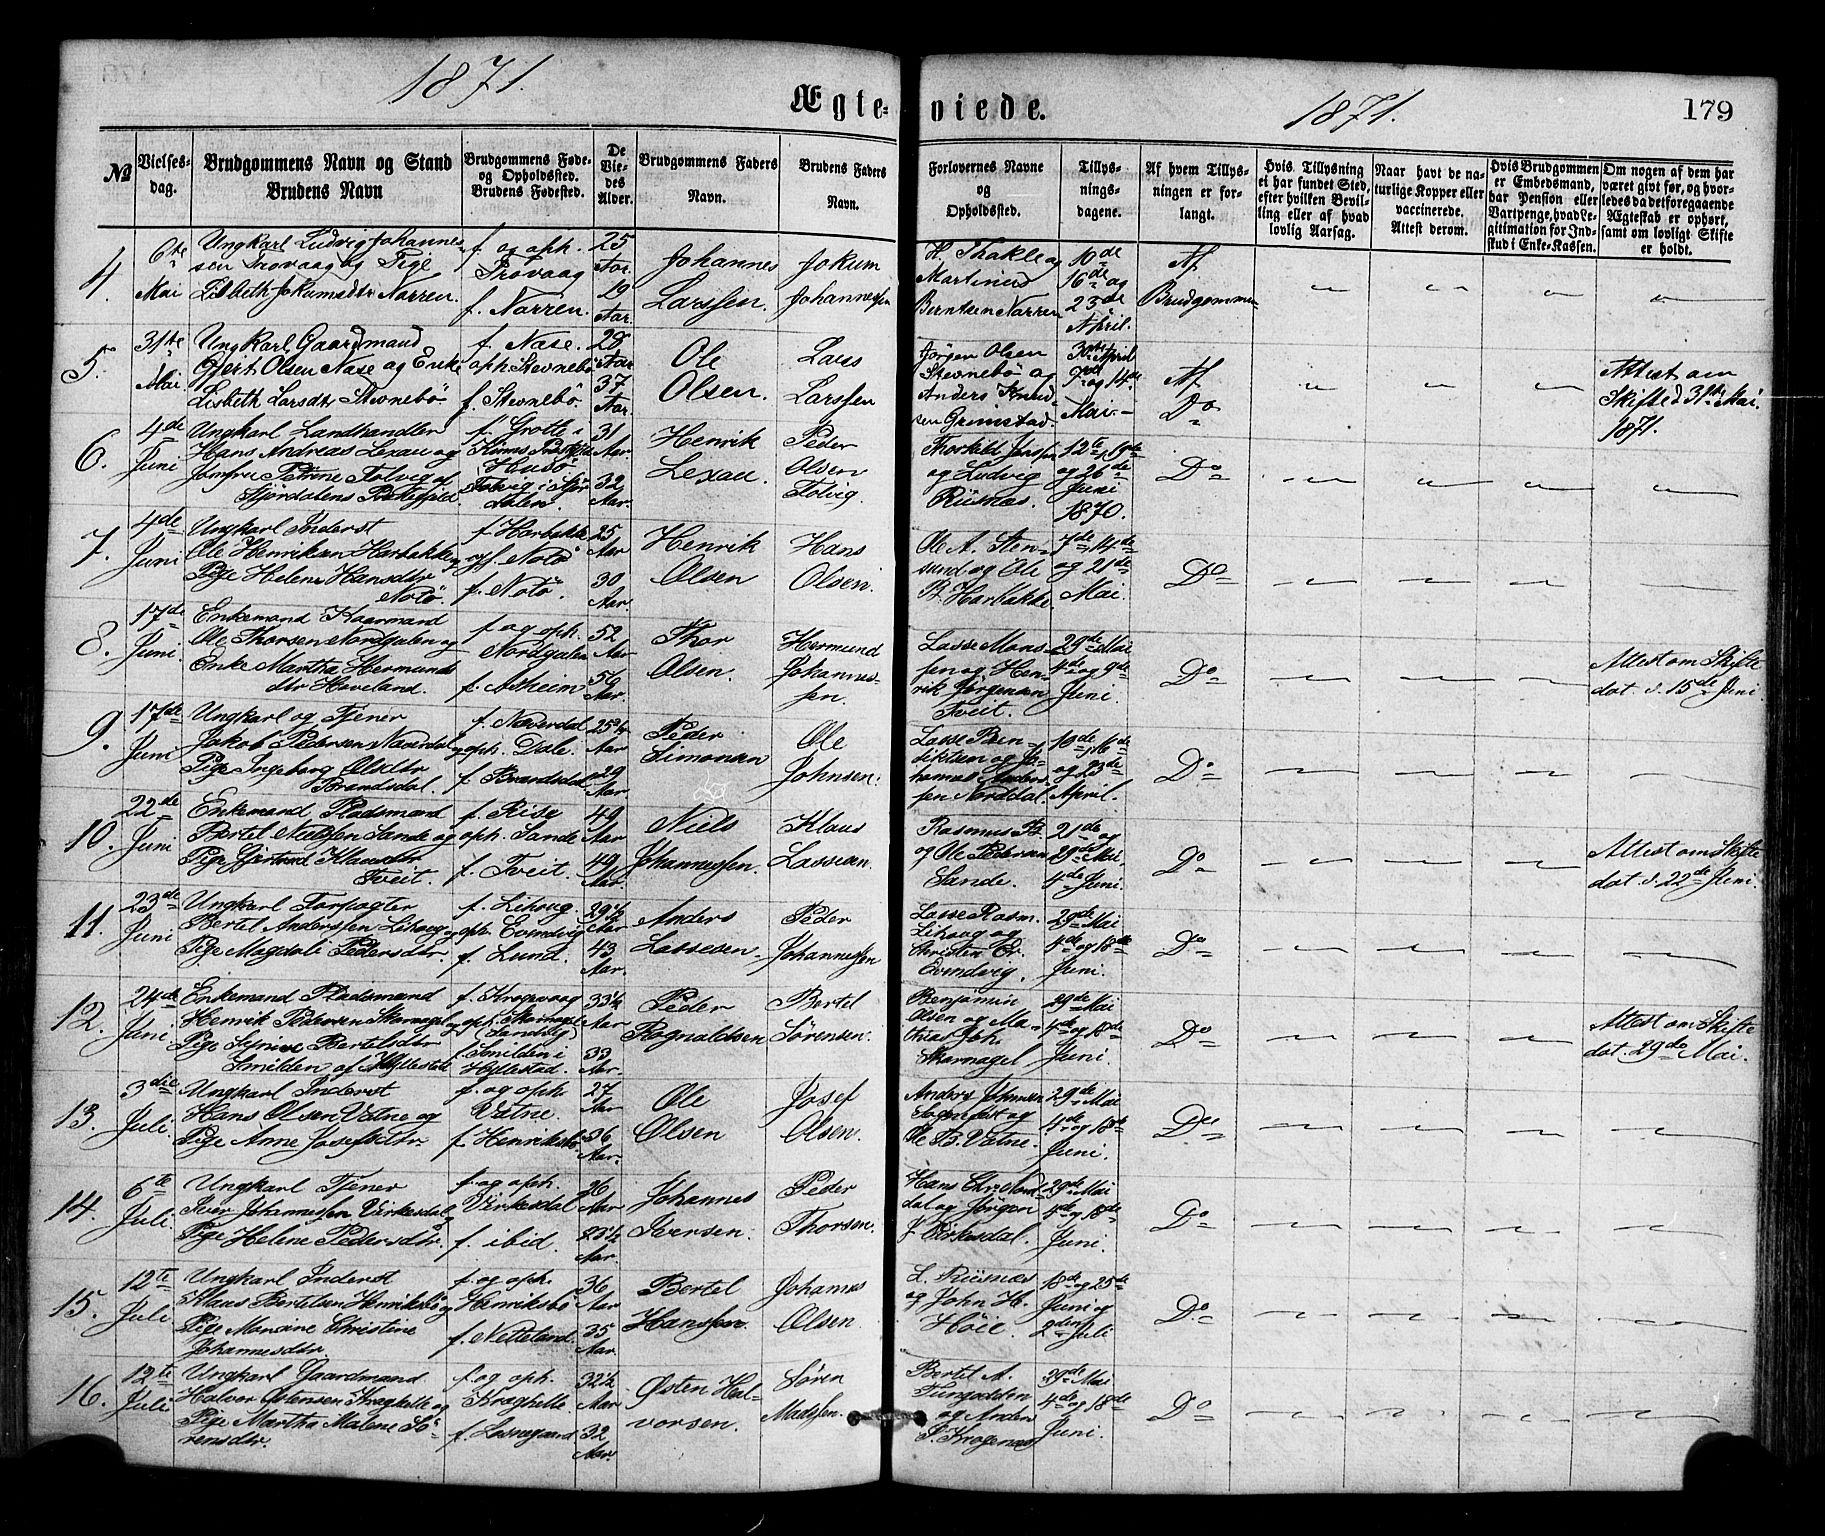 1871.
Ægte-
viede.
1871.
179
№
Vielses-
dag.
Brudgommens Navn og Stand
Brudens Navn
Brudgommens Føde-
og Opholdssted.
Brudens Fødested.
De
Vie-
des
Alder.
Brudgommens Faders
Navn.
Brudens Faders
Navn.
Forlovernes Navne
og
Opholdssted.
Tillys-
nings-
dagene.
Af hvem Tillys-
ningen er for-
langt.
Hvis Tillysning
ei har fundet Sted,
efter hvilken Bevil-
ling eller af hvad
lovlig Aarsag.
Naar havt de na-
turlige Kopper eller
vaccinerede.
Attest derom.
Hvis Brudgommen
er Embedsmand,
har Pension eller
Vartpenge, hvad Le-
gitimation for Ind-
skud i Enke-Kassen.
Om nogen af dem har
været givt før, og hvor-
ledes da det foregaaende
Ægteskab er ophørt,
samt om lovligt Skifte
er holdt.
4.
6te
Mai
Ungkarl Ludvig Johannes-
sen Trovaag og Pige
Lisbeth Jokumsdtr Narren.
f. og oph.
Trovaag
f. Narren.
25
Aar.
19
Aar.
Johannes
Larssen.
Jokum
Johannessen
H. Thakle og
Martinus
Berntsen Narren
16de og
23de
April.
Af
Brudgommen
5.
31te
Mai
Ungkarl Gaardmand
Gjert Olsen Nase og Enke
Lisbeth Larsdtr Stevnebö
f. Nase.
oph. Stevnebö
f. Stevnebö.
28
Aar
37
Aar.
Ole
Olsen.
Lars
Larssen
Jörgen Olsen
Stevnebö og
Anders Knud-
sen Grimstad
30te April
7de og 14de
Mai.
Af
Do
Attest om
Skifte d 31te Mai.
1871.
6.
4de
Juni
Ungkarl Landhandler
Hans Andreas Lexau og
Jomfru Petrine Tolvig af
Fjordalens Præstegjeld
31
Aar.
32
Aar.
Henrik
Lexau.
Peder
Olsen
Tolvig.
Thorkild Jenssen
og Ludvig
Riisnæs.
12te 19de
og 26de
Juni
1870.
Do
7.
4de
Juni
Ungkarl Inderst
Ole Henriksen Harbakke
Pige Helene Hansdtr
Notö.
f. Harbakke
og f. Notö
f. Notö.
25
Aar
30
Aar.
Henrik
Olsen
Hans
Olsen.
Ole A. Sten-
sund og Ole
B. Harbakke.
7de 14de
og 21de
Mai.
Do
8.
17de
Juni.
Enkemand Kaarmand
Ole Thorsen Nordgalen og
Enke Martha Hermunds
dtr Hoveland.
f. og oph.
Nordgalen
f. Asheim
52
Aar
56
Aar.
Thor
Olsen.
Hermund
Johannes-
sen.
Lasse Mons-
sen og Hen-
rik Jörgensen
Tveit.
29de Mai
4de og 9de
Juni.
Do
Attest om Skifte
dat. d. 15de Juni
9.
17de
Juni
Ungkarl og Tjener
Jakob Pedersen Naverdal
Pige Ingeborg Olsdtr
Brandsdal.
f. Naverdal
oph. Dale.
f. Brandsdal
25½
Aar
29
Aar.
Peder
Simonsen
Ole
Johnsen.
Lasse Ben-
diktsen og Jo-
hannes Anders-
sen Norddal.
10de 16de
og 23de
April.
Do
10.
22de
Juni
Enkemand Pladsmand
Bertel Nielssen Sande og
Pige Gjertrud Klausdtr
Tveit.
f. Rise
oph. Sande
f. Tveit.
49
Aar
49
Aar.
Niels
Johannessen.
Klaus
Lassesen.
Rasmus B.
og Ole Pedersen
Sande.
21de og
29de Mai.
4de Juni.
Do
Attest om Skifte
dat. d. 22de Juni.
11.
23de
Juni
Ungkarl Forpagter
Bertel Anderssen Lihoug
Pige Magdali Pedersdtr.
f. Lihoug.
oph. Evindvig
f. Lund.
29½
Aar
43
Aar.
Anders
Lassesen.
Peder
Johannessen
Lasse Rasm.
Lihoug og
Christen Er.
Evindvig.
29de Mai
4de og 18de
Juni.
Do
12.
24de
Juni
Enkemand Pladsmand
Henrik Pedersen Skarnagel
Pige Synive Bertelsdtr
Smilden af Hyllestad
f. Krogevaag
oph. Skarnagel
f. Smilden i
Hyllestad.
33½
Aar
33
Aar.
Peder
Rognaldsen
Bertel
Sörensen.
Benjamin
Olsen og Ma-
thias Joh.
Skarnagel
29de Mai
4de og 18de
Juni
Do
Attest om Skifte
dat. 29de Mai.
13.
3die
Juli
Ungkarl Inderst
Hans Olsen Vatne og
Pige Anne Josefsdtr
f. og oph.
Vatne.
f. Henriksbö.
27
Aar
36
Aar.
Ole
Olsen
Josef
Olsen.
Anders Johnsen
Sognefest og
Ole B. Vatne.
29de Mai
4de og 18de
Juni.
Do
14.
6te
Juli.
Ungkarl Tjener
Iver Johannessen Virkesdal
Pige Helene Pedersdtr.
f. og oph.
Virkesdal
f. ibid.
26
Aar
23½
Aar.
Johannes
Iversen.
Peder
Thorsen.
Hans Chr. Nord-
dal og Jörgen
J. Birkesdal.
29de Mai
4de og 18de
Juni.
Do
15.
12te
Juli
Ungkarl Inderst
Klaus Bertelsen Henriksbö og
Pige Mansine Christine
Johannesdtr.
f. og oph.
Henriksbö
f. Netteland.
36
Aar
35
Aar.
Bertel
Hanssen.
Johannes
Olsen.
L. Riisnæs
og John H.
Höie.
18de og 25de
Juni og
2den Juli
Do
16.
12te
Juli
Ungkarl Gaardmand
Halvor Østensen Kraghelle og
Pige Martha Malene Sö-
rensdtr.
f. og oph.
Kraghelle.
32½
Aar
32
Aar.
Østen Hal-
vorsen.
Sören
Madssen.
Bertel A.
Tungodden
og Anders
S. Krogenæs
29de Mai
4de og 18de
Juni.
Do